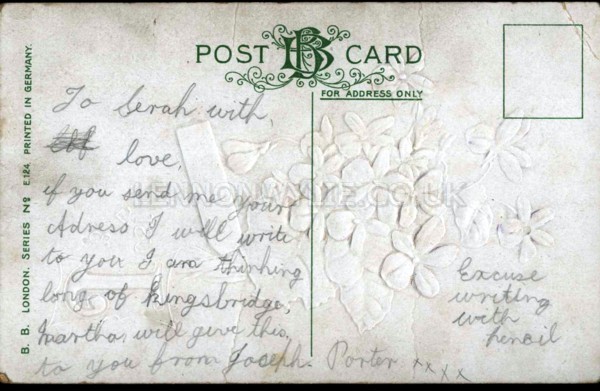 POST CARD
BB
FOR ADDRESS ONLY
B. B. LONDON. SERIES No E.124. PRINTED IN GERMANY.
To Serah with,
love,
if you send me your
Adress I will write
to you I am thinking
long of kingsbridge,
Martha, will give this,
to you from Joseph. Porter xxxx
Excuse
writing
with
pencil
LENNONWYLIE.CO.UK